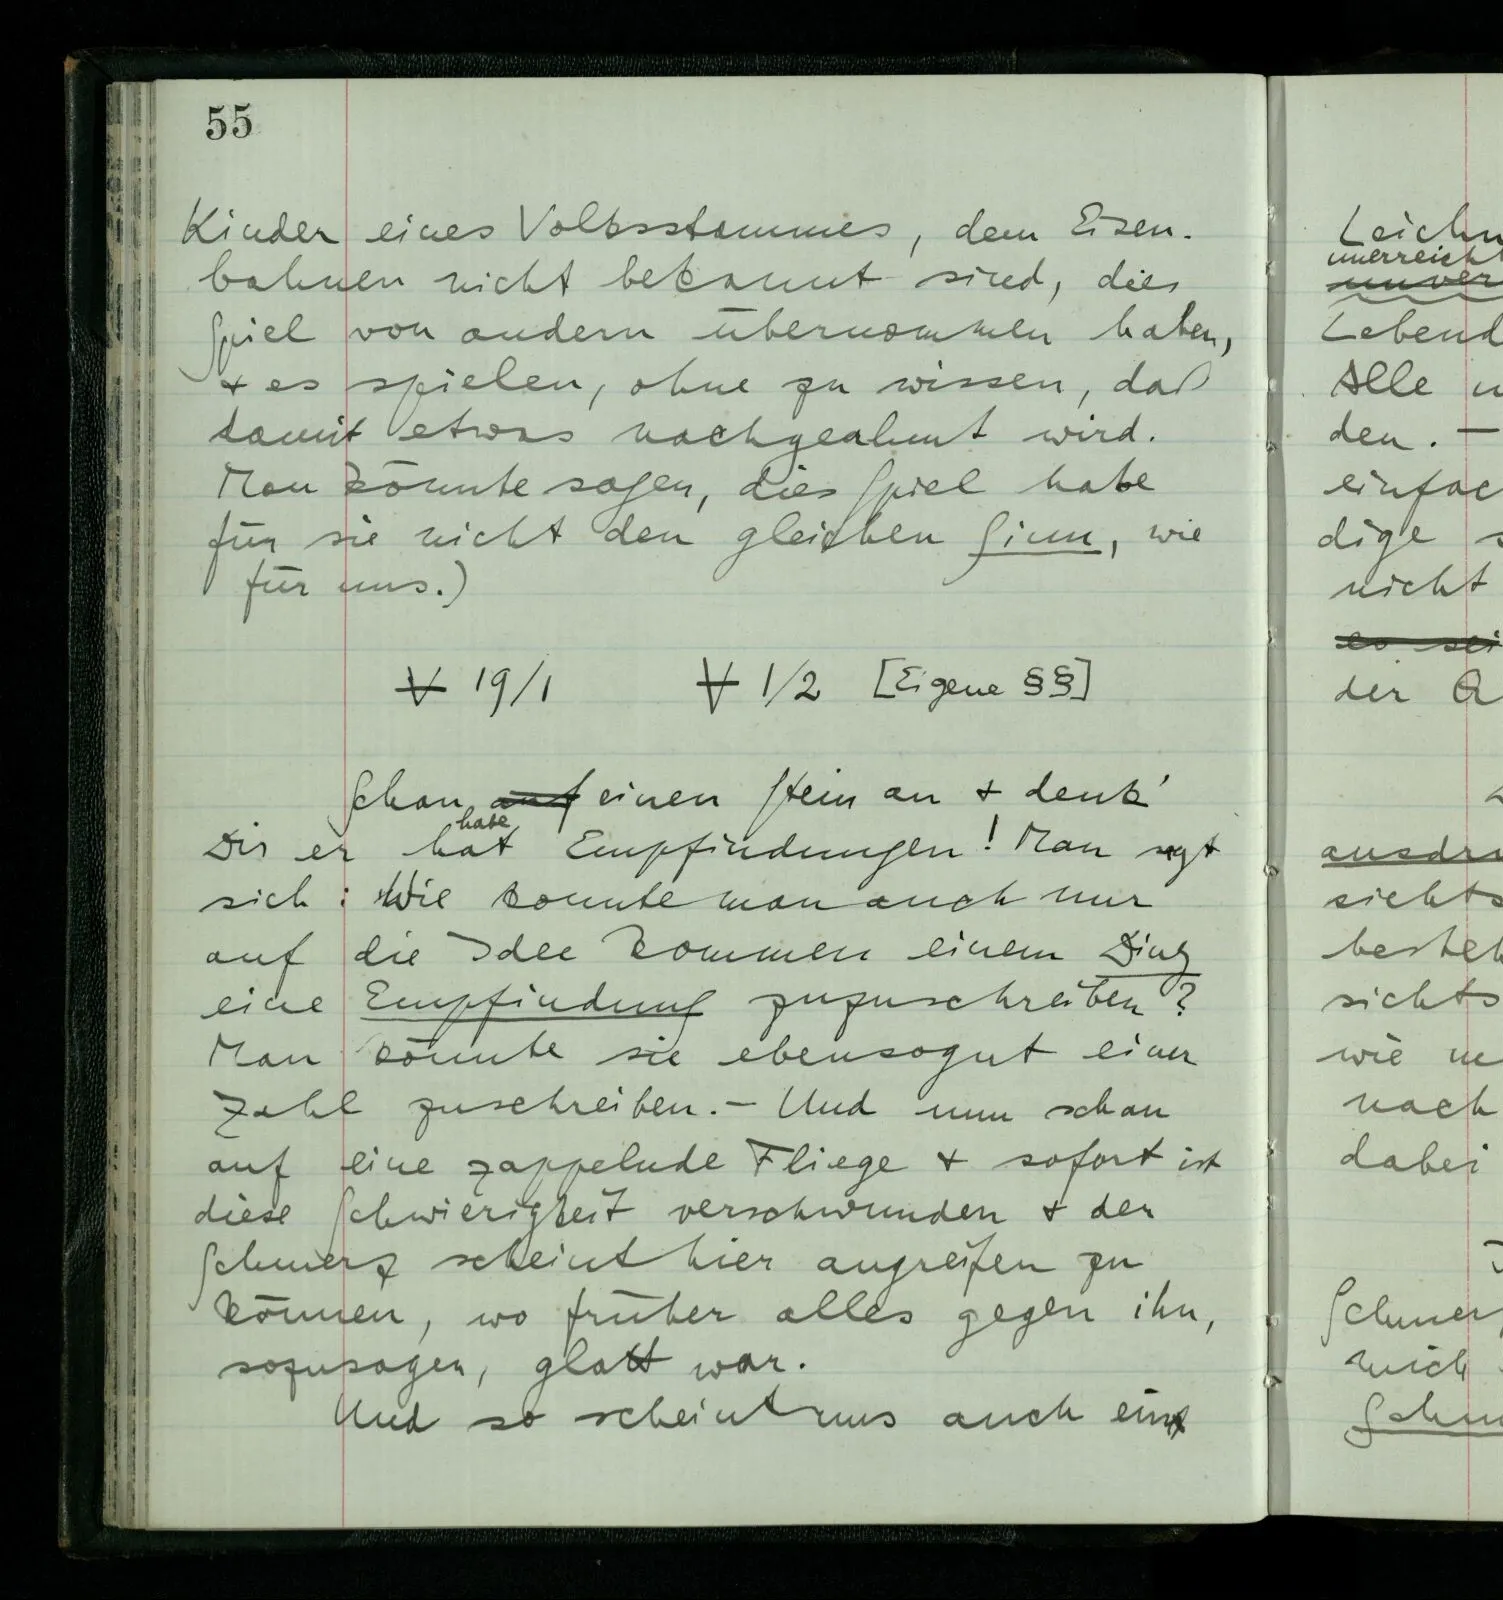 55
Kinder eines Volksstammes, dem Eisen-
bahnen nicht bekannt sind, dies
Spiel von andern übernommen haben,
+ es spielen, ohne zu wissen, daß
damit etwas nachgeahmt wird.
Man könnte sagen, dies Spiel habe
für sie nicht den gleichen Sinn, wie
für uns.)
∀ 19/1 ∀ 1/2 [Eigene §§]
Schau auf einen Stein an + denk'
habe
Dir er hat Empfindungen! Man sagt
sich: Wie konnte man auch nur
auf die Idee kommen einem Ding
eine Empfindung zuzuschreiben?
Man könnte sie ebensogut einer
Zahl zuschreiben. – Und nun schau
auf eine zappelnde Fliege + sofort ist
diese Schwierigkeit verschwunden + der
Schmerz scheint hier angreifen zu
können, wo früher alles gegen ihn,
sozusagen, glatt war.
Und so scheint uns auch ein
Leichn
unerreicht
unver
Lebend
Alle u
den. –
einfac
dige s
nicht
es sei
der Q
ausdru
sichts
besteh
sichts
wie m
nach
dabei
Schmerz
mich
Schm